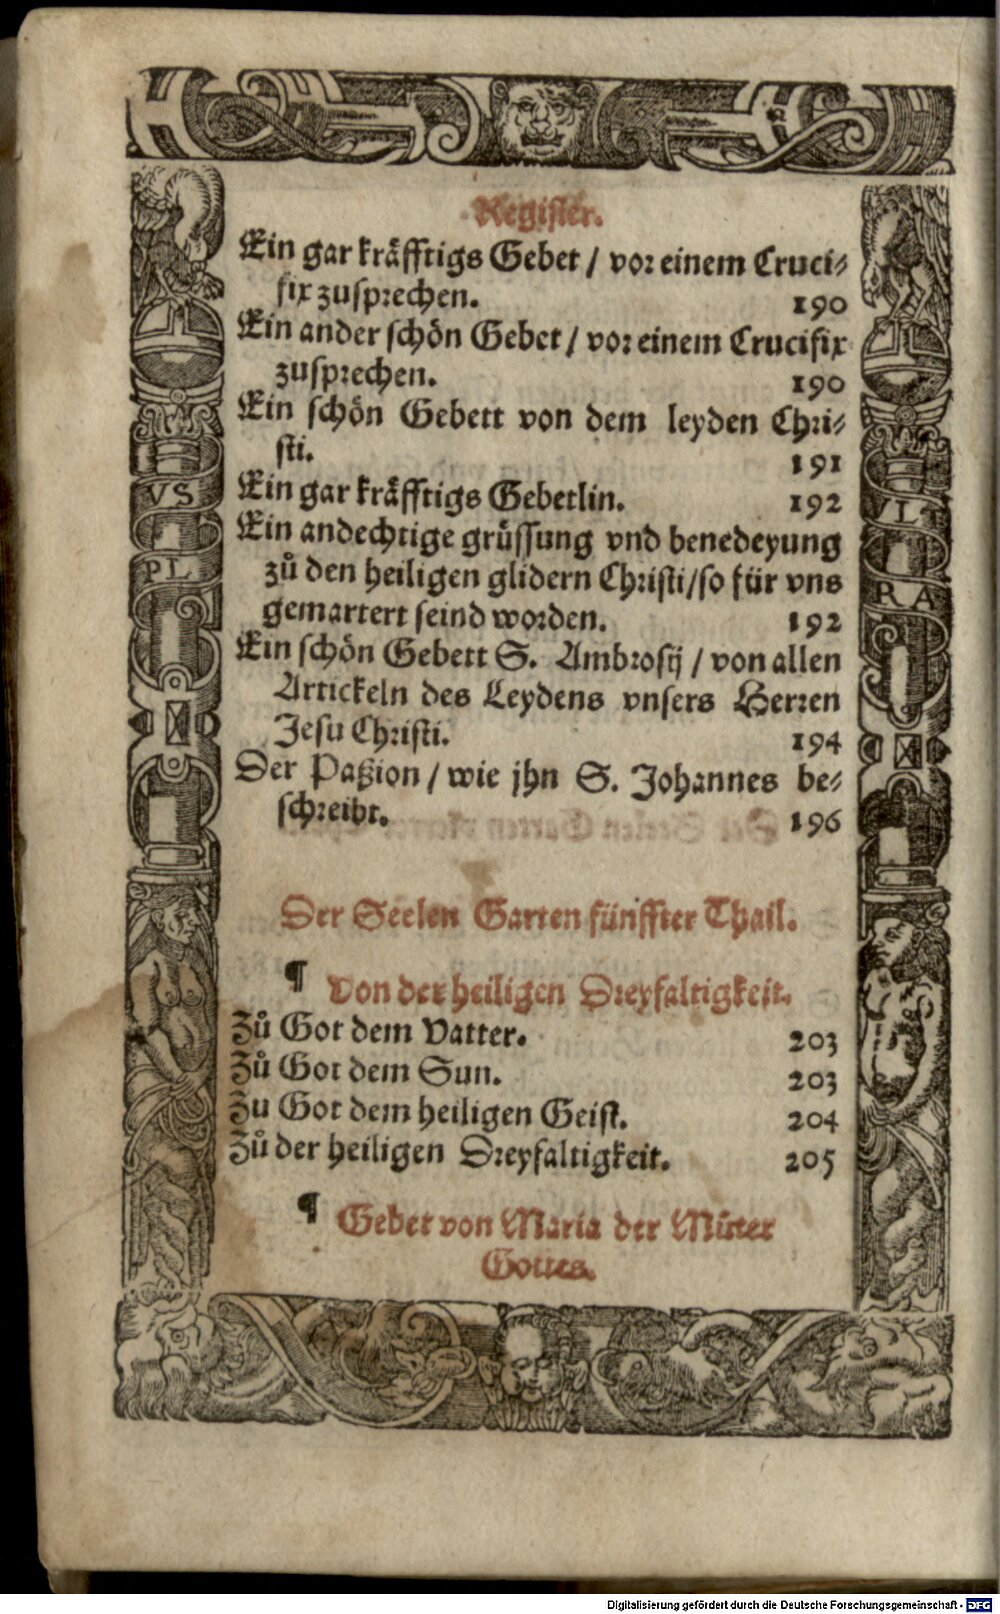 Register.
Ein gar kräfftigs Gebet / vor einem Cruci⸗
fix zusprechen. 190
Ein ander schön Gebet / vor einem Crucifix
zusprechen. 190
Ein schön Gebett von dem leyden Chri⸗
sti. 191
Ein gar kräfftigs Gebetlin. 192
Ein andechtige grüssung vnd benedeyung
zů den heiligen glidern Christi/so für vns
gemartert seind worden. 192
Ein schön Gebett S. Ambrosij / von allen
Artickeln des Leydens vnsers Herren
Jesu Christi. 194
Der Paßion / wie jhn S. Johannes be⸗
schreibt. 196
Der Seelen Garten fünffter Thail.
¶ Von der heiligen Dreyfaltigkeit.
Zů Got dem Vatter. 203
Zů Got dem Sun. 203
Zu Got dem heiligen Geist. 204
Zů der heiligen Dreyfaltigkeit. 205
¶ Gebet von Maria der Můter
Gottes.
VS
PL
VL
RA
Digitalisierung gefördert durch die Deutsche Forschungsgemeinschaft - DFG